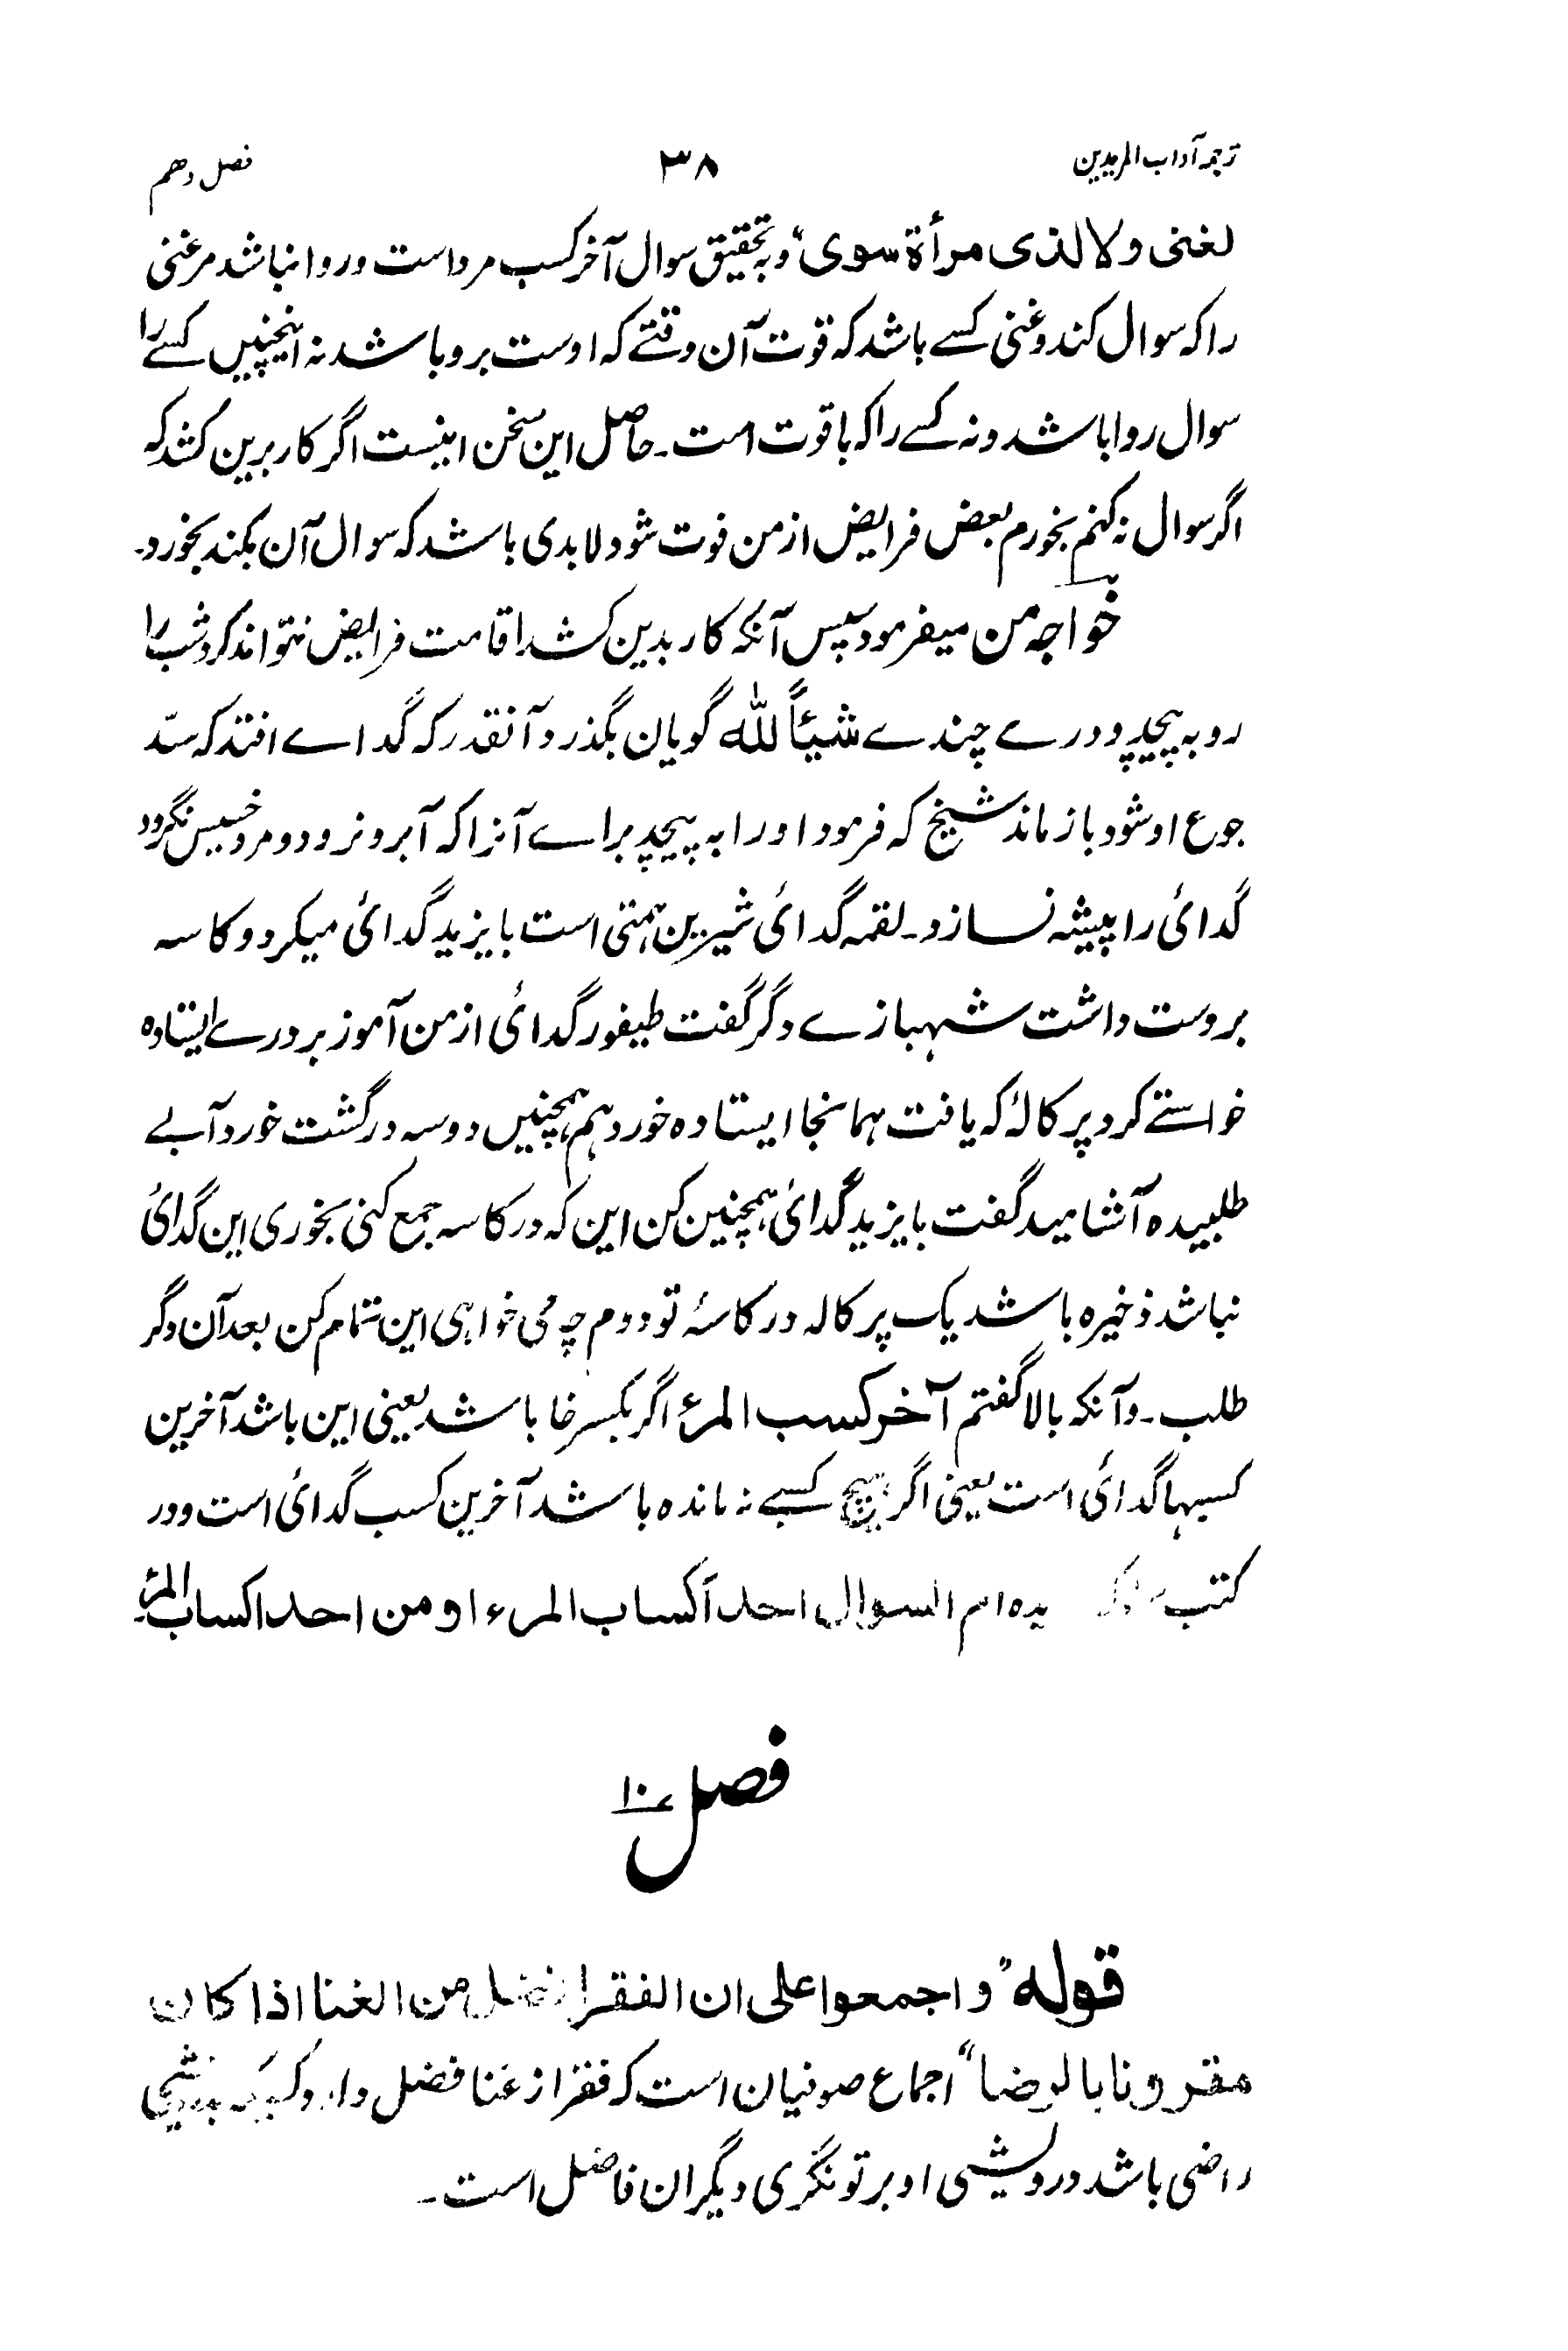 ترجمہ آداب المریدین ۳۸ فصل دهم
لغنی ولا لذی مرأة سوی" و بہ تحقیق سوال آخر کسب مرد است و روا نباشد مر غنی
را کہ سوال کند و غنی کسے باشد کہ قوت آن وقتے کہ اوست برو باشد نہ اینچنیں کسے را
سوال روا باشد و نہ کسے را کہ با قوت است۔ حاصل این سخن اینست اگر کار برین کشد کہ
اگر سوال نہ کنم بخورم بعض فرایض از من فوت شود لا بدی باشد کہ سوال آن بکند بخورد۔
خواجہ من میفرمود سپس آنکہ کار بدین کشد اقامت فرایض نتواند کرد شب را
رو بہ پیچد و درے چندے شیئاً لله گویان بگذرد آنقدر کہ گداے افتد کہ سدّ
جوع او شود باز ماند شیخ کہ فرمود او را بہ پیچد براے آنرا کہ آبرو نرود و مرد خسیس نگردد
گدائی را پیشہ نسازد۔ لقمہ گدائی شیرین ہمتی است بایزید گدائی میکرد و کاسہ
بر دست داشت شہبازے دگر گفت طیفور گدائی از من آموز بر درے ایستاده
خواستے کرد پرکالۂ کہ یافت ہمانجا ایستاده خورد ہم ہمچنیں دو سہ در گشت خورد آبے
طلبیده آشامید گفت بایزید گدائی ہمچنین کن این کہ در کاسہ جمع کنی بخوری این گدائی
نباشد ذخیره باشد یک پرکالہ در کاسۂ تو دوم چہ می خواہی این تمام کن بعد آن دگر
طلب۔ و آنکہ بالا گفتم آخر کسب المرء اگر بکسر خا باشد یعنی این باشد آخرین
کسبہا گدائی است یعنی اگر ہیچ کسبے نہ مانده باشد آخرین کسب گدائی است و در
کتب یده ام السوال احد اکساب المرء او من احد اکساب المرء۔
فصل ۱۰
قوله" و اجمعوا علی ان الفقر افضل من الغنا اذا کان
مقرونا بالرضا" اجماع صوفیان است کہ فقر از غنا فضل دارد
راضی باشد درویشی او بر تونگری دیگران فاضل است۔